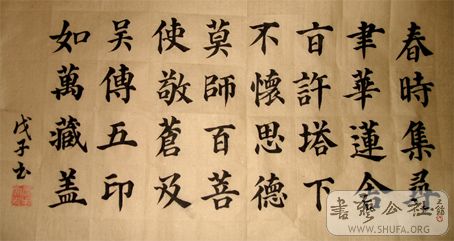 春時集尋
聿華蓮
許塔下
不懷思德
莫師百菩
使敬蒼及
吳傳五印
如萬藏盖
戊子书
書藝公社
WWW.SHUFA.ORG